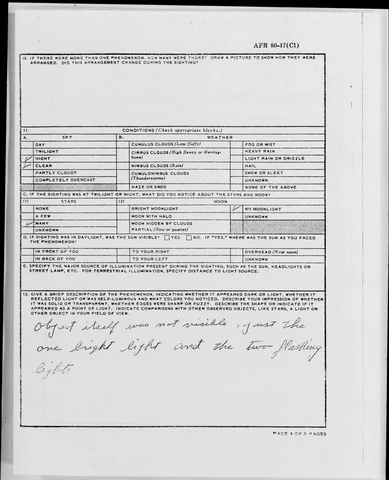 AFR 80-17(C1)
10. IF THERE WERE MORE THAN ONE PHENOMENON, HOW MANY WERE THERE? DRAW A PICTURE TO SHOW HOW THEY WERE
ARRANGED. DID THIS ARRANGEMENT CHANGE DURING THE SIGHTING?
11. CONDITIONS (Check appropriate blocks.)
A. SKY B. WEATHER
DAY CUMULUS CLOUDS (Low fluffy) FOG OR MIST
TWILIGHT CIRRUS CLOUDS (High fleecy or Herring-bone) HEAVY RAIN
NIGHT LIGHT RAIN OR DRIZZLE
CLEAR NIMBUS CLOUDS (Rain) HAIL
PARTLY CLOUDY CUMULONIMBUS CLOUDS (Thunderstorms) SNOW OR SLEET
COMPLETELY OVERCAST UNKNOWN
HAZE OR SMOG NONE OF THE ABOVE
C. IF THE SIGHTING WAS AT TWILIGHT OR NIGHT, WHAT DID YOU NOTICE ABOUT THE STARS AND MOON?
(1) STARS (2) MOON
NONE BRIGHT MOONLIGHT NO MOONLIGHT
A FEW MOON WITH HALO UNKNOWN
MANY MOON HIDDEN BY CLOUDS
UNKNOWN PARTIAL (New or quarter)
D. IF SIGHTING WAS IN DAYLIGHT, WAS THE SUN VISIBLE? YES NO IF "YES," WHERE WAS THE SUN AS YOU FACED
THE PHENOMENON?
IN FRONT OF YOU TO YOUR RIGHT OVERHEAD (Near noon)
IN BACK OF YOU TO YOUR LEFT UNKNOWN
E. SPECIFY THE MAJOR SOURCE OF ILLUMINATION PRESENT DURING THE SIGHTING, SUCH AS THE SUN, HEADLIGHTS OR
STREET LAMP, ETC. FOR TERRESTRIAL ILLUMINATION, SPECIFY DISTANCE TO LIGHT SOURCE.
12. GIVE A BRIEF DESCRIPTION OF THE PHENOMENON, INDICATING WHETHER IT APPEARED DARK OR LIGHT, WHETHER IT
REFLECTED LIGHT OR WAS SELF-LUMINOUS AND WHAT COLORS YOU NOTICED. DESCRIBE YOUR IMPRESSION OF WHETHER
IT WAS SOLID OR TRANSPARENT, WHETHER EDGES WERE SHARP OR FUZZY. DESCRIBE THE SHAPE OR INDICATE IF IT
APPEARED AS A POINT OF LIGHT. INDICATE COMPARISONS WITH OTHER OBSERVED OBJECTS, LIKE STARS, A LIGHT OR
OTHER OBJECT IN YOUR FIELD OF VIEW.
Object itself was not visible - just the
one bright light and the two flashing
lights
PAGE 3 OF 5 PAGES